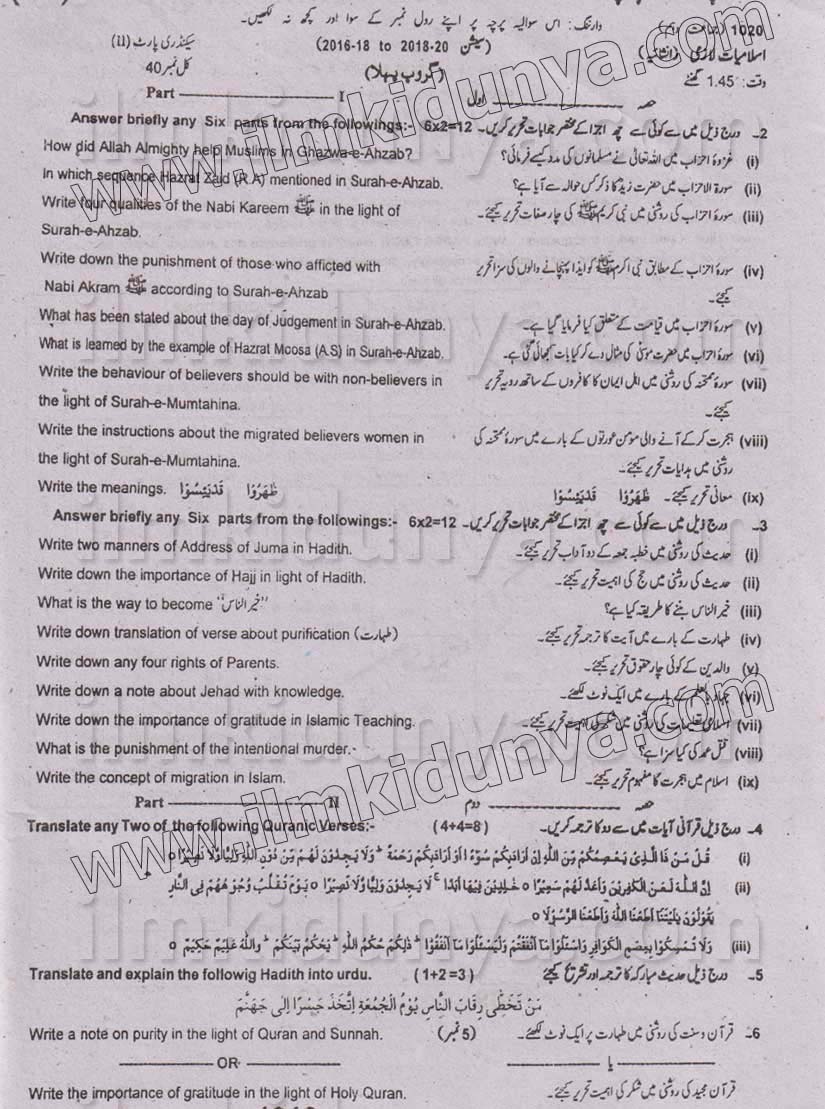 وارننگ: اس سوالیہ پرچہ پر اپنے رول نمبر کے سوا اور کچھ نہ لکھیں۔
1020
(سیشن 2016-18 to 2018-20)
سیکنڈری پارٹ (ii)
اسلامیات لازمی
(گروپ پہلا)
کل نمبر 40
وقت: 1.45 گھنٹے
حصہ اول Part I
2۔ درج ذیل میں سے کوئی سے چھ اجزا کے مختصر جوابات تحریر کریں۔ 6x2=12 Answer briefly any Six parts from the followings:-
(i) غزوۂ احزاب میں اللہ تعالیٰ نے مسلمانوں کی مدد کیسے فرمائی؟ How did Allah Almighty help Muslims in Ghazwa-e-Ahzab?
(ii) سورۃ الاحزاب میں حضرت زیدؓ کا ذکر کس حوالہ سے آیا ہے؟ In which sequence Hazrat Zaid (R.A) mentioned in Surah-e-Ahzab.
(iii) سورۃ احزاب کی روشنی میں نبی کریم ﷺ کی چار صفات تحریر کیجئے۔ Write four qualities of the Nabi Kareem ﷺ in the light of
Surah-e-Ahzab.
(iv) سورۃ احزاب کے مطابق نبی اکرم ﷺ کو ایذا پہنچانے والوں کی سزا تحریر Write down the punishment of those who afficted with
کیجئے۔ Nabi Akram ﷺ according to Surah-e-Ahzab
(v) سورۃ احزاب میں قیامت کے متعلق کیا فرمایا گیا ہے۔ What has been stated about the day of Judgement in Surah-e-Ahzab.
(vi) سورۃ احزاب میں حضرت موسیٰؑ کی مثال دے کر کیا بات سمجھائی گئی ہے۔ What is learned by the example of Hazrat Moosa (A.S) in Surah-e-Ahzab.
(vii) سورۃ ممتحنہ کی روشنی میں اہل ایمان کا کافروں کے ساتھ رویہ تحریر Write the behaviour of believers should be with non-believers in
کیجئے۔ the light of Surah-e-Mumtahina.
(viii) ہجرت کر کے آنے والی مومن عورتوں کے بارے میں سورۃ ممتحنہ کی Write the instructions about the migrated believers women in
روشنی میں ہدایات تحریر کیجئے۔ the light of Surah-e-Mumtahina.
(ix) معانی تحریر کیجئے۔ ظَهَرُوْا قَدْيَئِسُوْا Write the meanings. ظَهَرُوْا قَدْيَئِسُوْا
3۔ درج ذیل میں سے کوئی سے چھ اجزا کے مختصر جوابات تحریر کریں۔ 6x2=12 Answer briefly any Six parts from the followings:-
(i) حدیث کی روشنی میں خطبہ جمعہ کے دو آداب تحریر کیجئے۔ Write two manners of Address of Juma in Hadith.
(ii) حدیث کی روشنی میں حج کی اہمیت تحریر کیجئے۔ Write down the importance of Hajj in light of Hadith.
(iii) خیر الناس بننے کا طریقہ کیا ہے؟ What is the way to become "خیر الناس"
(iv) طہارت کے بارے میں آیت کا ترجمہ تحریر کیجئے۔ Write down translation of verse about purification (طہارت)
(v) والدین کے کوئی چار حقوق تحریر کیجئے۔ Write down any four rights of Parents.
(vi) جہاد بالعلم کے بارے میں ایک نوٹ لکھئے۔ Write down a note about Jehad with knowledge.
(vii) اسلامی تعلیمات کی روشنی میں شکر کی اہمیت تحریر کیجئے۔ Write down the importance of gratitude in Islamic Teaching.
(viii) قتل عمد کی کیا سزا ہے؟ What is the punishment of the intentional murder.
(ix) اسلام میں ہجرت کا مفہوم تحریر کیجئے۔ Write the concept of migration in Islam.
حصہ دوم Part II
4۔ درج ذیل قرآنی آیات میں سے دو کا ترجمہ کریں۔ (4+4=8) Translate any Two of the following Quranic Verses:-
(i) قُلْ مَنْ ذَا الَّذِيْ يَعْصِمُكُمْ مِّنَ اللّٰهِ اِنْ اَرَادَبِكُمْ سُوْٓءًا اَوْ اَرَادَبِكُمْ رَحْمَةً ؕ وَلَا يَجِدُوْنَ لَهُمْ مِّنْ دُوْنِ اللّٰهِ وَلِيًّا وَّلَا نَصِيْرًا ○
(ii) اِنَّ اللّٰهَ لَعَنَ الْكٰفِرِيْنَ وَاَعَدَّ لَهُمْ سَعِيْرًا ○ خٰلِدِيْنَ فِيْهَا اَبَدًا ۚ لَا يَجِدُوْنَ وَلِيًّا وَّلَا نَصِيْرًا ○ يَوْمَ تُقَلَّبُ وُجُوْهُهُمْ فِى النَّارِ
يَقُوْلُوْنَ يٰلَيْتَنَآ اَطَعْنَا اللّٰهَ وَاَطَعْنَا الرَّسُوْلَا ○
(iii) وَلَا تُمْسِكُوْا بِعِصَمِ الْكَوَافِرِ وَاسْئَلُوْا مَآ اَنْفَقْتُمْ وَلْيَسْئَلُوْا مَآ اَنْفَقُوْا ؕ ذٰلِكُمْ حُكْمُ اللّٰهِ ؕ يَحْكُمُ بَيْنَكُمْ ؕ وَاللّٰهُ عَلِيْمٌ حَكِيْمٌ ○
5۔ درج ذیل حدیث مبارکہ کا ترجمہ اور تشریح کیجئے (1+2=3) Translate and explain the followig Hadith into urdu.
مَنْ تَخَطّٰى رِقَابَ النَّاسِ يَوْمَ الْجُمُعَةِ اِتَّخَذَ جَسْرًا اِلٰى جَهَنَّمَ
6۔ قرآن و سنت کی روشنی میں طہارت پر ایک نوٹ لکھئے۔ (5 نمبر) Write a note on purity in the light of Quran and Sunnah.
یا OR
قرآن مجید کی روشنی میں شکر کی اہمیت تحریر کیجئے۔ Write the importance of gratitude in the light of Holy Quran.
www.ilmkidunya.com